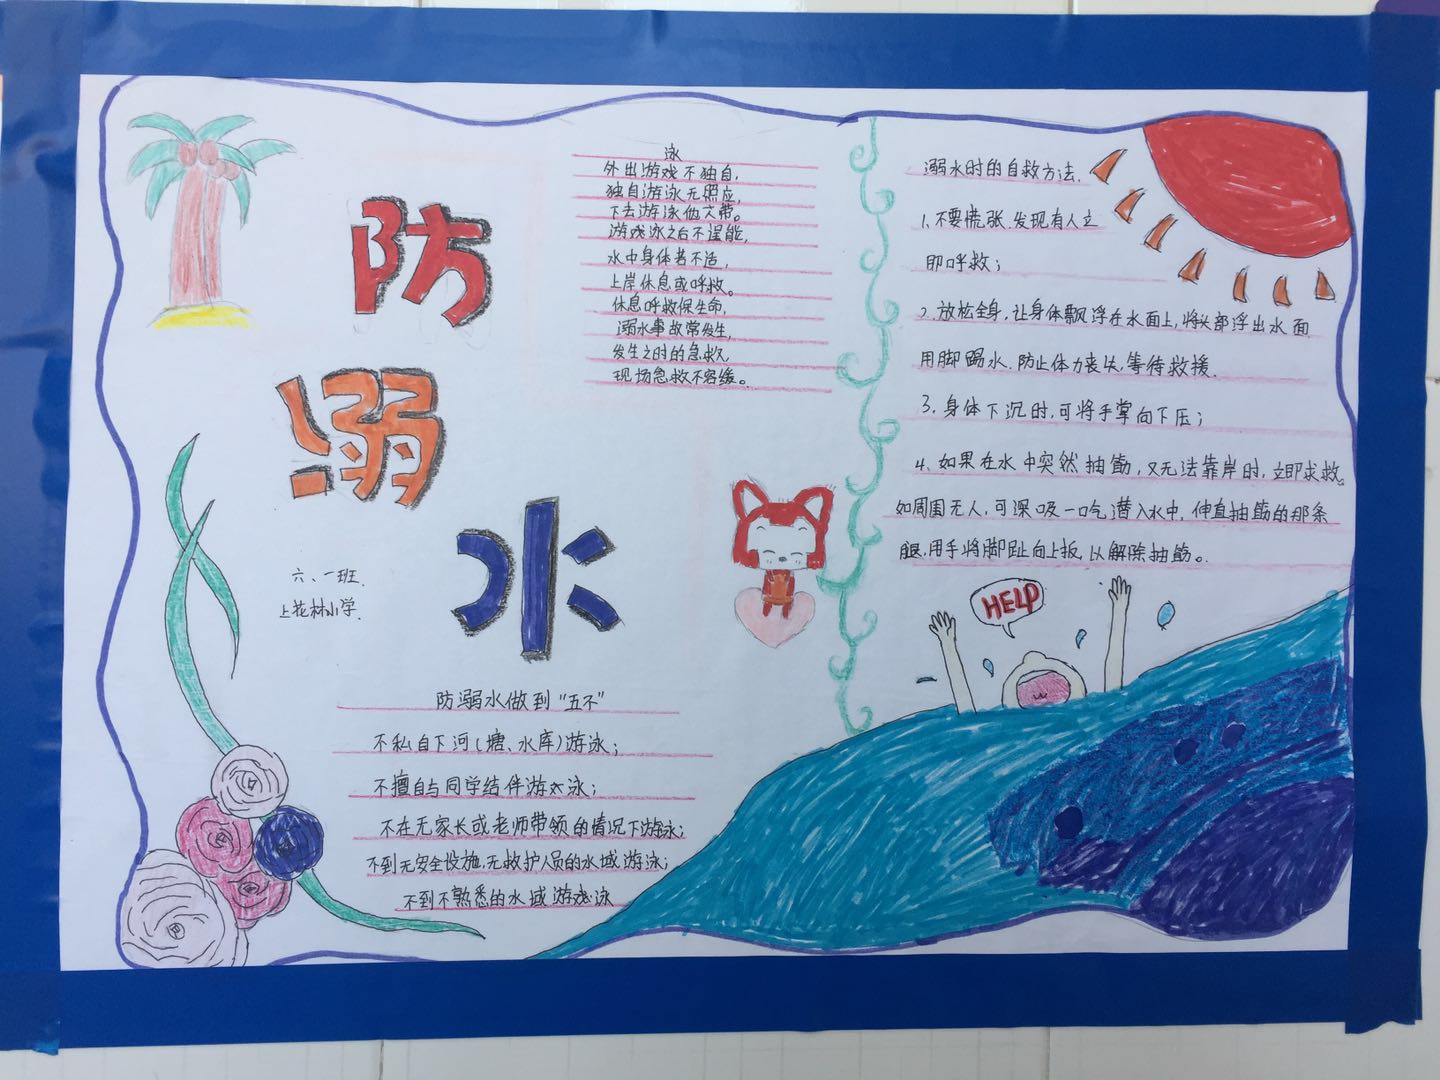 防
溺
水
六、一班.
上花林小学.
泳
外出游戏不独自,
独自游泳无照应,
下去游泳伙大带。
游戏泳之后不逞能,
水中身体若不适,
上岸休息或呼救。
休息呼救保生命,
溺水事故常发生,
发生之时的急救,
现场急救不容缓。
防溺水做到“五不”
不私自下河(塘、水库)游泳;
不擅自与同学结伴游泳;
不在无家长或老师带领的情况下游泳;
不到无安全设施、无救护人员的水域游泳;
不到不熟悉的水域游戏泳
溺水时的自救方法.
1、不要慌张.发现有人立
即呼救;
2.放松全身,让身体飘浮在水面上,将头部浮出水面
用脚踢水.防止体力丧失,等待救援.
3.身体下沉时,可将手掌向下压;
4、如果在水中突然抽筋,又无法靠岸时,立即求救。
如周围无人,可深吸一口气潜入水中,伸直抽筋的那条
腿,用手将脚趾向上扳,以解除抽筋。
HELP